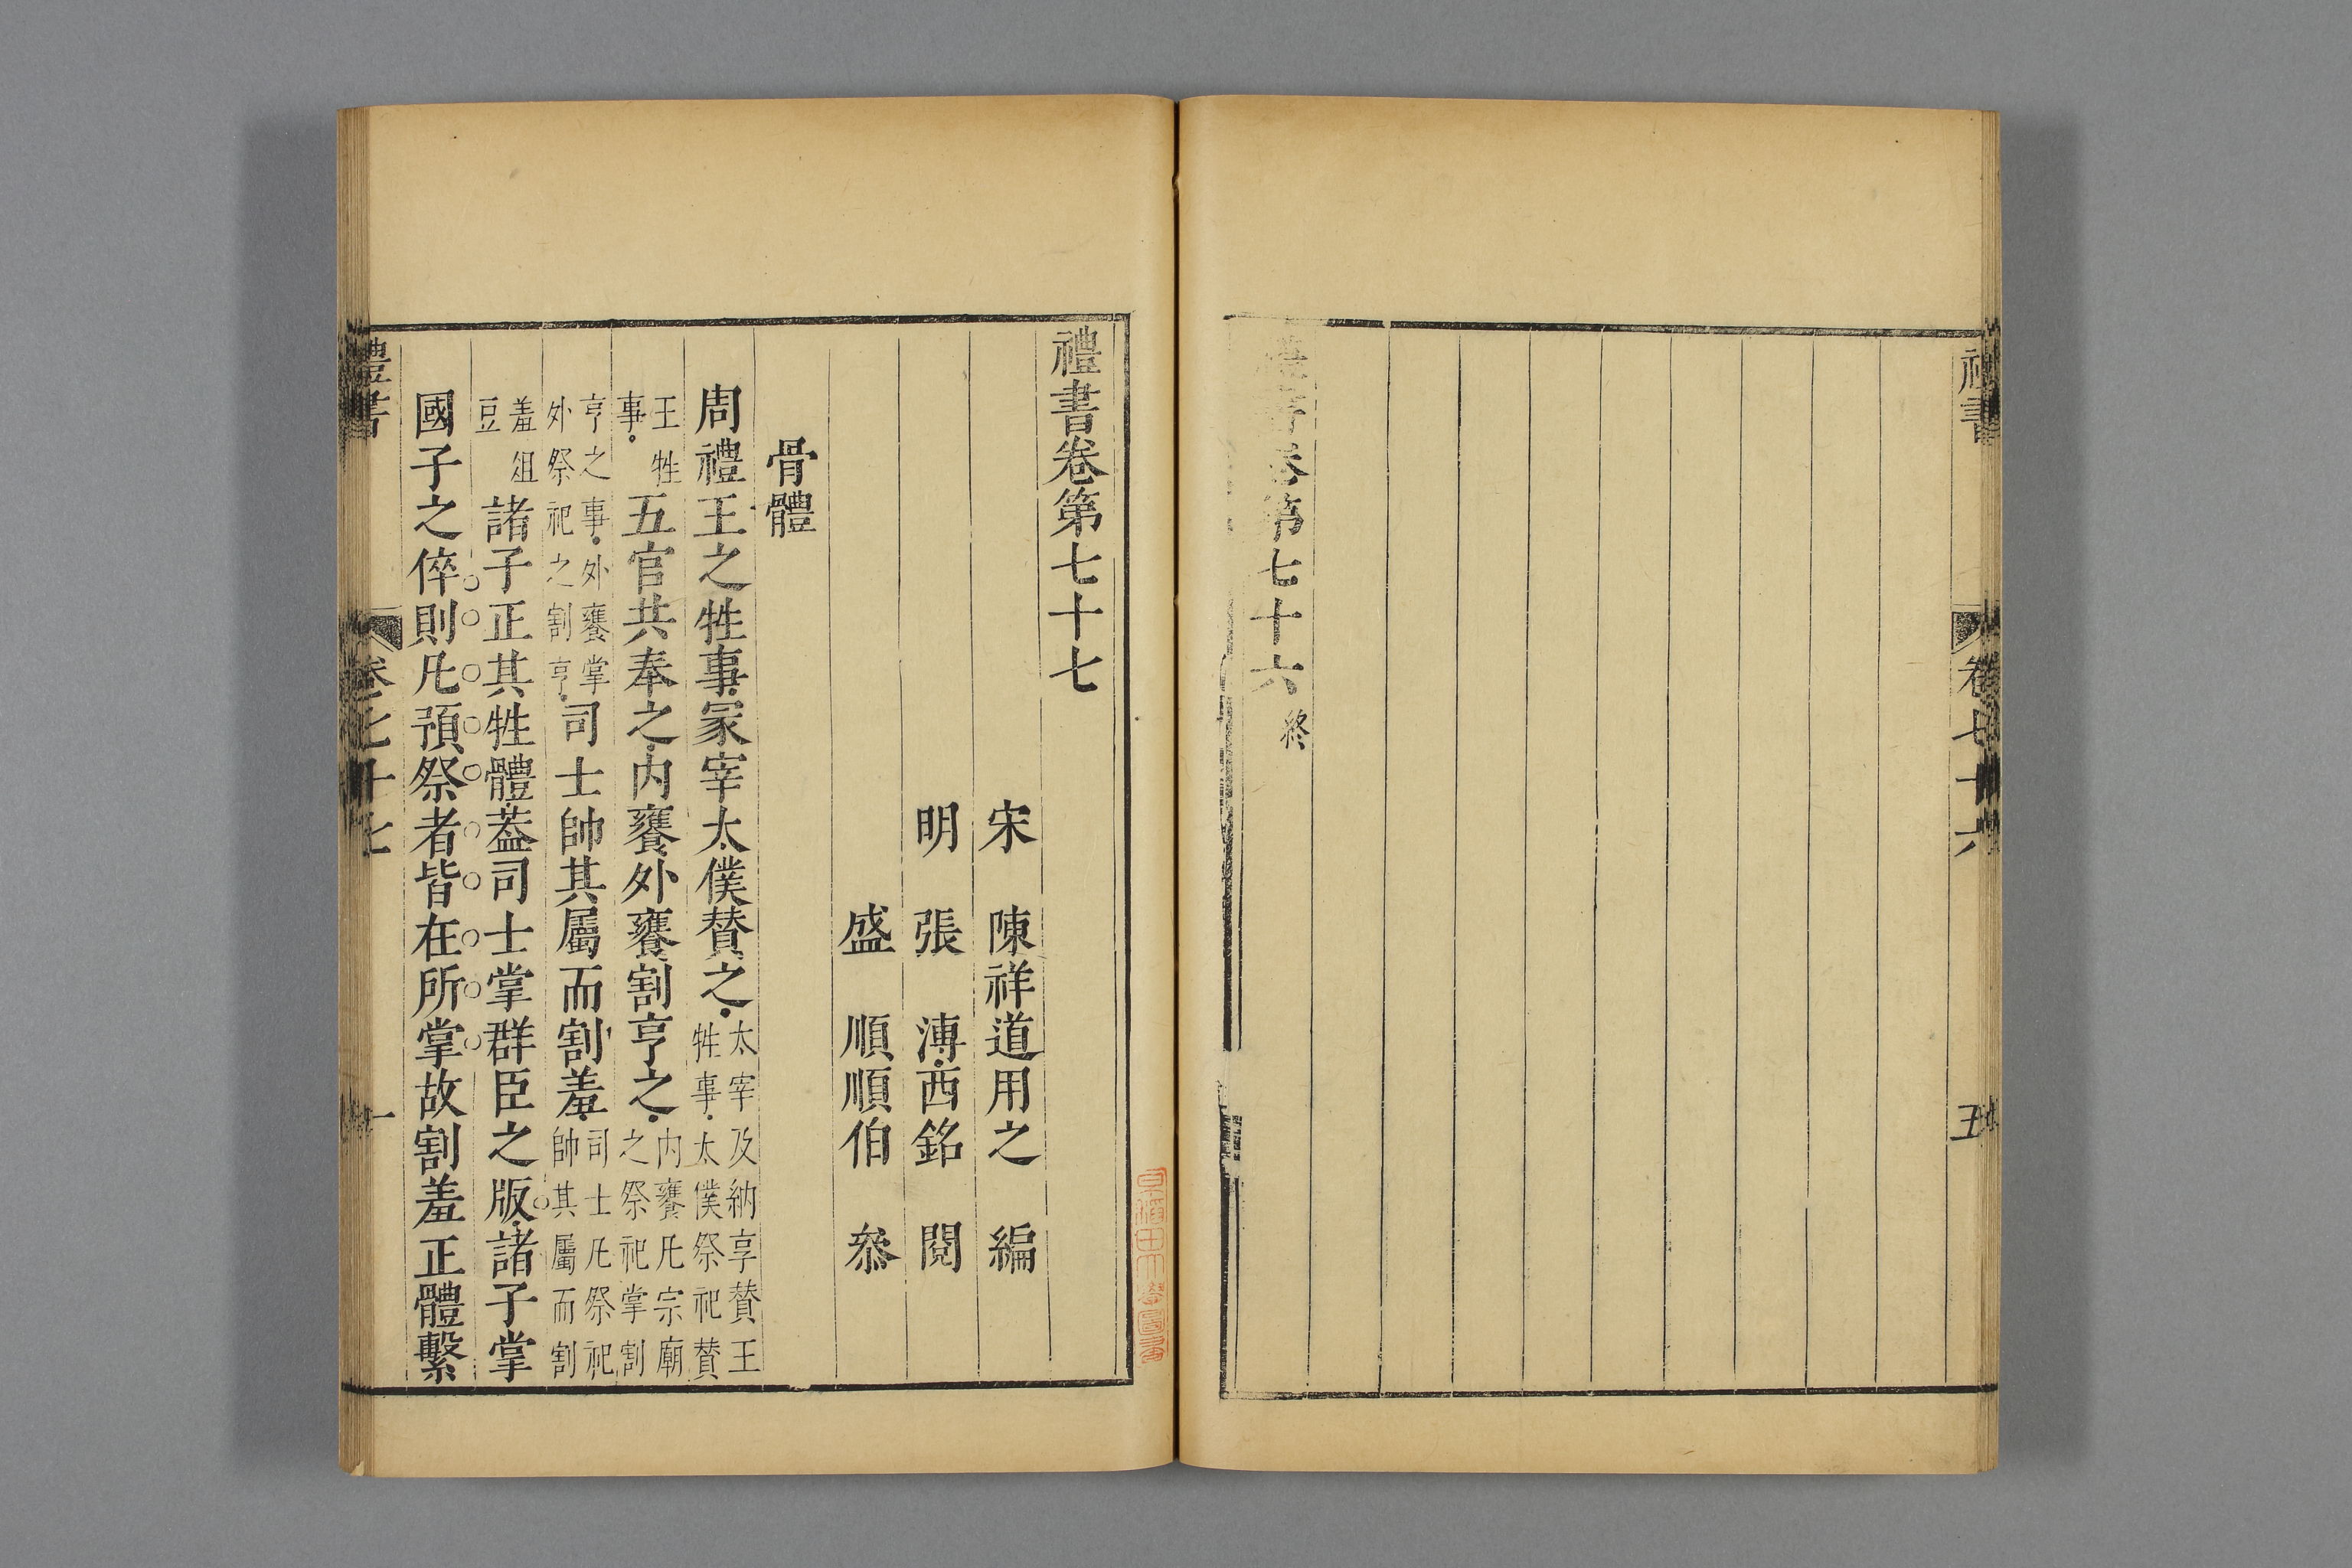 禮書 卷七十六 五
卷第七十六 終
禮書卷第七十七
宋 陳祥道用之 編
明 張 溥西銘 閱
盛 順順伯 叅
骨體
周禮王之牲事冡宰太僕賛之太宰及納享賛王牲事太僕祭祀賛
王牲事五官共奉之内饔外饔割亨之内饔凡宗廟之祭祀掌割
亨之事外饔掌外祭祀之割亨司士帥其屬而割羞司士凡祭祀帥其屬而割
羞俎豆諸子正其牲體葢司士掌群臣之版諸子掌
國子之倅則凡預祭者皆在所掌故割羞正體繫
禮書 卷七十七 一
早稲田大學圖書